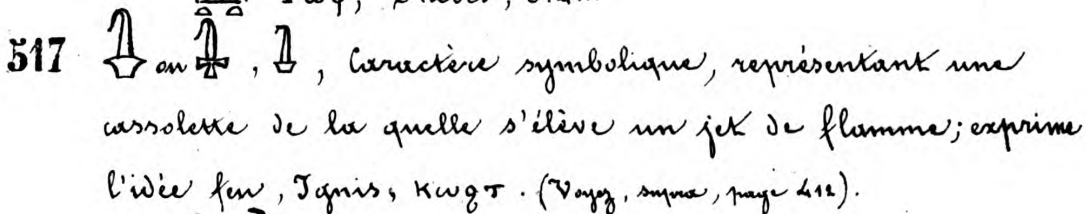 517 𓊮 ou 𓊮, 𓊮, Caractère symbolique, représentant une
cassolette de la quelle s'élève un jet de flamme; exprime
l'idée feu, Ignis, ⲕⲱϩⲧ. (Voyez, supra, page 412).